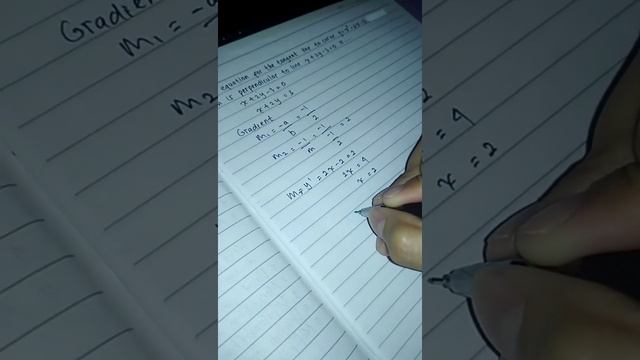 equation for the tangent line to curve
is perpendicular to line x+2y-3=0
x+2y-3=0
x+2y=3
Gradient
m₁ = -a/b = -1/2
m₂ = -1/m = -1/(-1/2) = 2
y' = 2x-2=2
2x=4
x=2